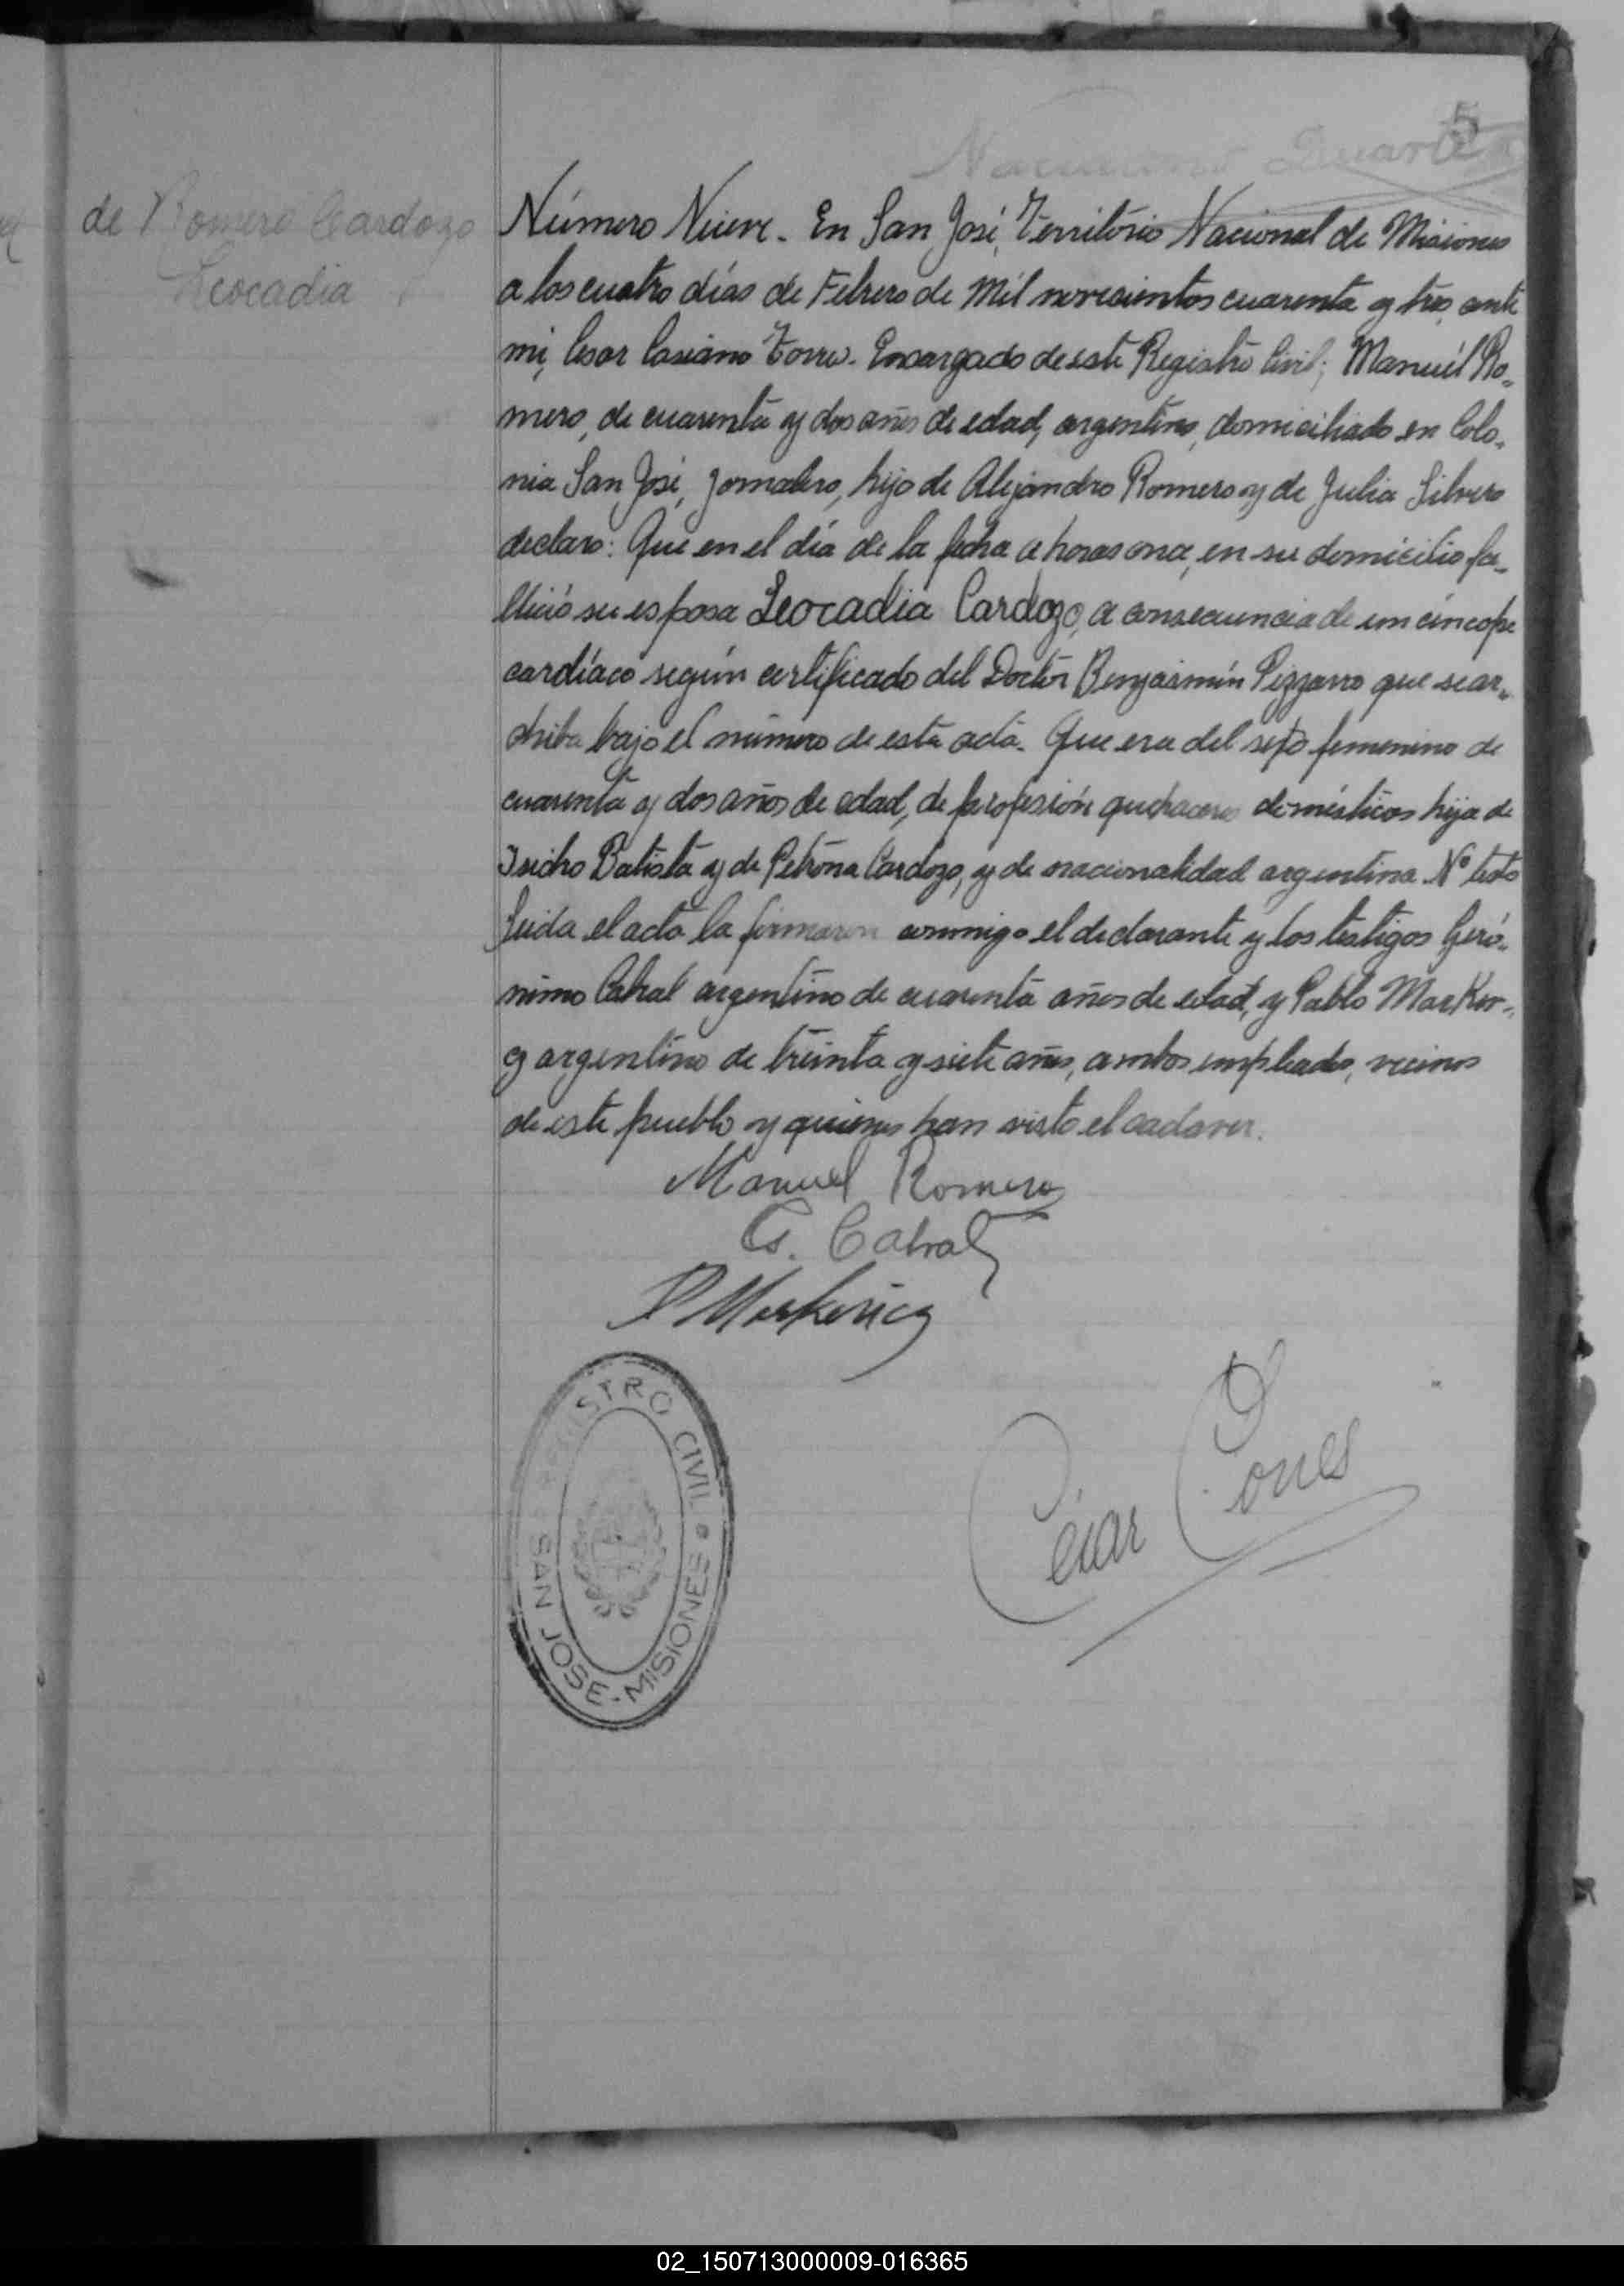 5
Duarte
de Romero Cardozo
Leocadia
Número Nueve. En San José, Territorio Nacional de Misiones
a los cuatro días de Febrero de Mil novecientos cuarenta y tres, ante
mi, Cesar Casiano Torres. Encargado de este Registro Civil; Manuél Ro-
mero, de cuarenta y dos años de edad, argentino, domiciliado en Colo-
nia San José, Jornalero, hijo de Alejandro Romero y de Julia Silvero
declaro: Que en el día de la fecha a horas once, en su domicilio fa-
lleció su esposa Leocadia Cardozo, a consecuencia de un síncope
cardíaco según certificado del Doctor Benjamín Pizzarro que se ar-
chiba bajo el número de esta acta. Que era del sexo femenino de
cuarenta y dos años de edad, de profesión quehaceres domésticos hija de
Isidro Batista y de Petrona Cardozo, y de nacionalidad argentina. Nº testó
Leida el acta la firmaron conmigo el declarante y los testigos Geró-
nimo Cabral argentino de cuarenta años de edad, y Pablo Markev-
y argentino de treinta y siete años, ambos empleados, vecinos
de este pueblo y quienes han visto el cadaver.
Manuel Romero
G. Cabral
P Markevicz
REGISTRO CIVIL
SAN JOSE - MISIONES
César Torres
02_150713000009-016365